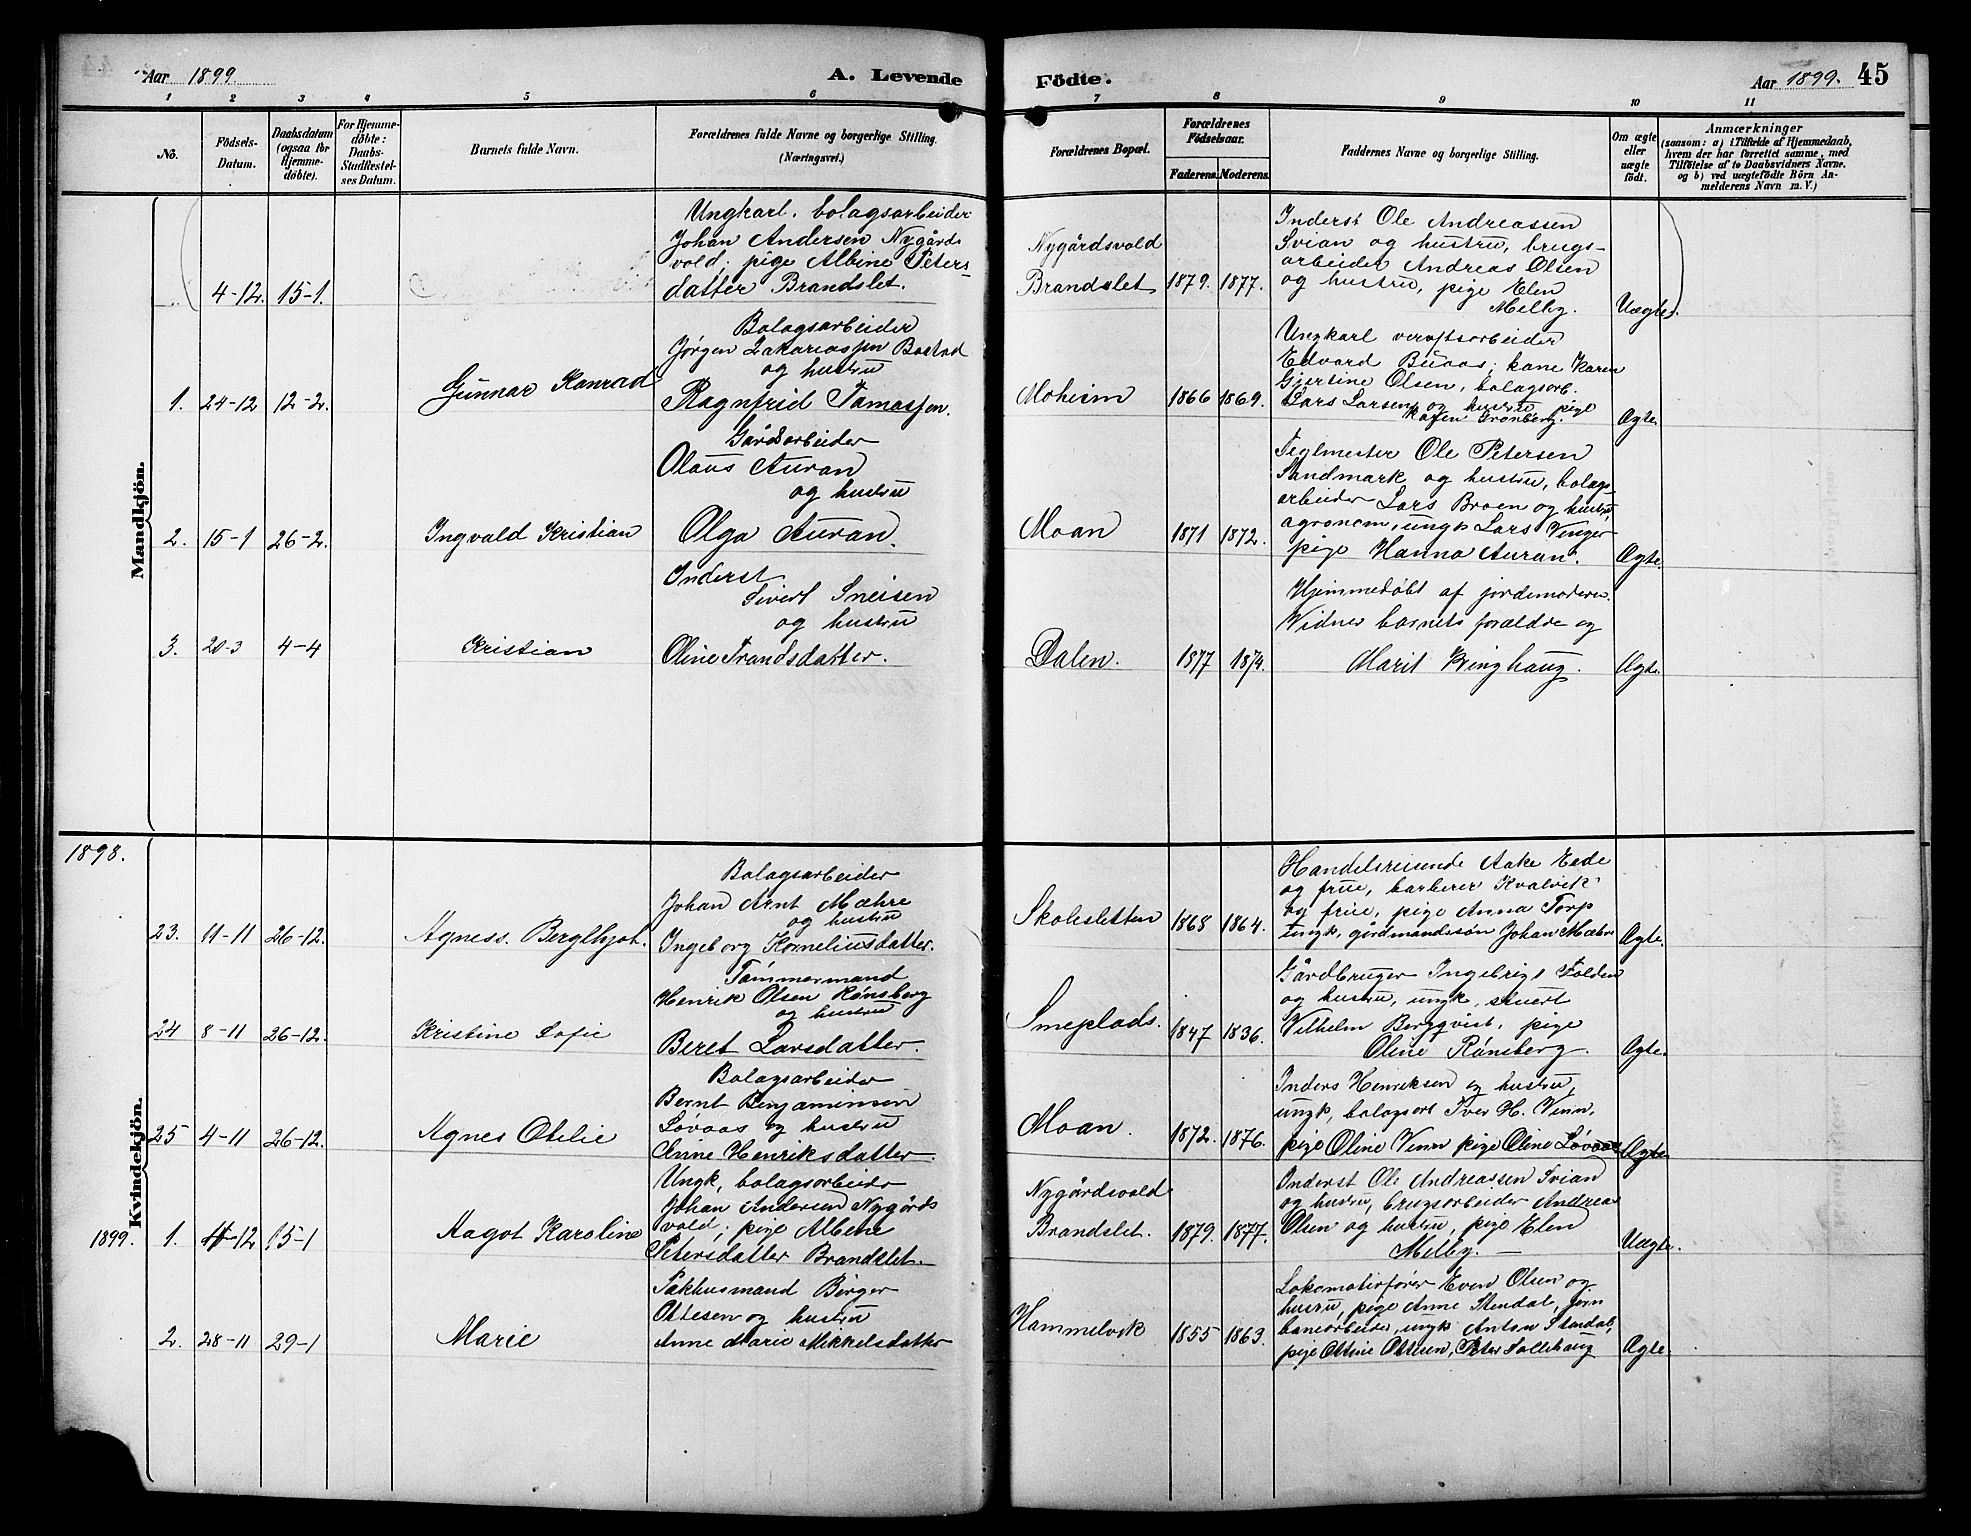 Aar 1899. A. Levende Födte. Aar 1899. 45
1 2 3 4 5 6 7 8 9 10 11
No.
Födsels-
Datum.
Daabsdatum
(ogsaa for
Hjemme-
döbte).
For Hjemme-
döbte:
Daabs-
Stadfæstel-
ses Datum.
Barnets fulde Navn.
Forældrenes fulde Navne og borgerlige Stilling.
(Næringsvei.)
Forældrenes Bopæl.
Forældrenes
Födselsaar.
Faderens. Moderens.
Faddernes Navne og borgerlige Stilling.
Om ægte
eller
uægte
födt.
Anmærkninger
(saasom: a) i Tilfælde af Hjemmedaab,
hvem der har forrettet samme, med
Tilföielse af to Daabsvidners Navne.
og b) ved uægtefödte Börn An-
melderens Navn m. V.)
Mandkjön.
4-12 15-1
Ungkarl. bolagsarbeider
Johan Andersen Nygårds
vold, pige Albine Peters-
datter Brandslet.
Nygårdsvold
Brandslet 1879. 1877.
Inderst Ole Andreassen
Svian og hustru, brugs-
arbeider Andreas Olsen
og hustru, pige Elen
Melby. Uægte.
1. 24-12 12-2. Gunnar Konrad
Bolagsarbeider
Jørgen Zakariassen Bostad
og hustru
Ragnfrid Tomassen.
Moheim 1866 1869.
Ungkarl verftsarbeider
Edvard Buaas; kone Karen
Gjertine Olsen, bolagsarb.
Lars Larsen og hustru pige
Karen Grønberg. Ægte.
2. 15-1 26-2. Ingvald Kristian
Gårdsarbeider
Olaus Auran
og hustru
Olga Auran.
Moan 1871 1872.
Teglmester Ole Petersen
Sandmark og hustru, bolags-
arbeider Lars Broen og hustru,
agronom, ungk Lars Vinger
pige Hanna Auran. Ægte.
3. 20-3 4-4 Kristian
Inderst
Sivert Sneisen
og hustru
Oline Trandsdatter.
Dalen. 1877 1874.
Hjemmedøbt af jordemoderen.
Vidner barnets forældre og
Marit Kringhaug. Ægte.
1898.
Kvindekjön.
23. 11-11 26-12. Agness. Berglhjot.
Bolagsarbeider
Johan Arnt Mæhre
og hustru
Ingeborg Korneliusdatter.
Skolesletten 1868 1864.
Handelsreisende Aake Eede
og frue, barberer Kvalvik
og frue, pige Anna Torp
ungk, gårdmandssøn Johan Mæhre Ægte.
24 8-11 26-12. Kristine Sofie
Tømmermand
Henrik Olsen Rønsberg
og hustru
Beret Larsdatter.
Smeplads. 1847 1836.
Gårdbruger Ingebrigt Folden
og hustru, ungk, stuert
Vilhelm Bergqvist, pige
Oline Rønsberg. Ægte.
25 4-11 26-12. Agnes Otelie
Bolagsarbeider
Bernt Benjaminsen
Løvaas og hustru
Anne Henriksdatter.
Moan. 1872. 1876.
Inders Henriksen og hustru,
ungk, bolagsarb Iver H. Venn,
pige Oline Venn pige Oline Løvaas Ægte
1899. 1. 4-12 15-1 Magot Karoline
Ungk, bolagsarbeider
Johan Andersen Nygårds
vold, pige Albine
Petersdatter Brandslet.
Nygårdsvold
Brandslet. 1879. 1877.
Inderst Ole Andreassen Svian
og hustru, brugsarbeider Andreas
Olsen og hustru, pige Elen
Melby. Uægte.
2. 28-11 29-1 Marie
Pakhusmand Birger
Ottesen og hustru
Anne Marie Mikkelsdatter
Hammelvik 1855 1863.
Lokomotivfører Even Olsen og
hustru, pige Anne Stendal, jern
banearbeider, ungk Anton Stendal,
pige Ottine Ottesen, Peter Sollihaug Ægte.